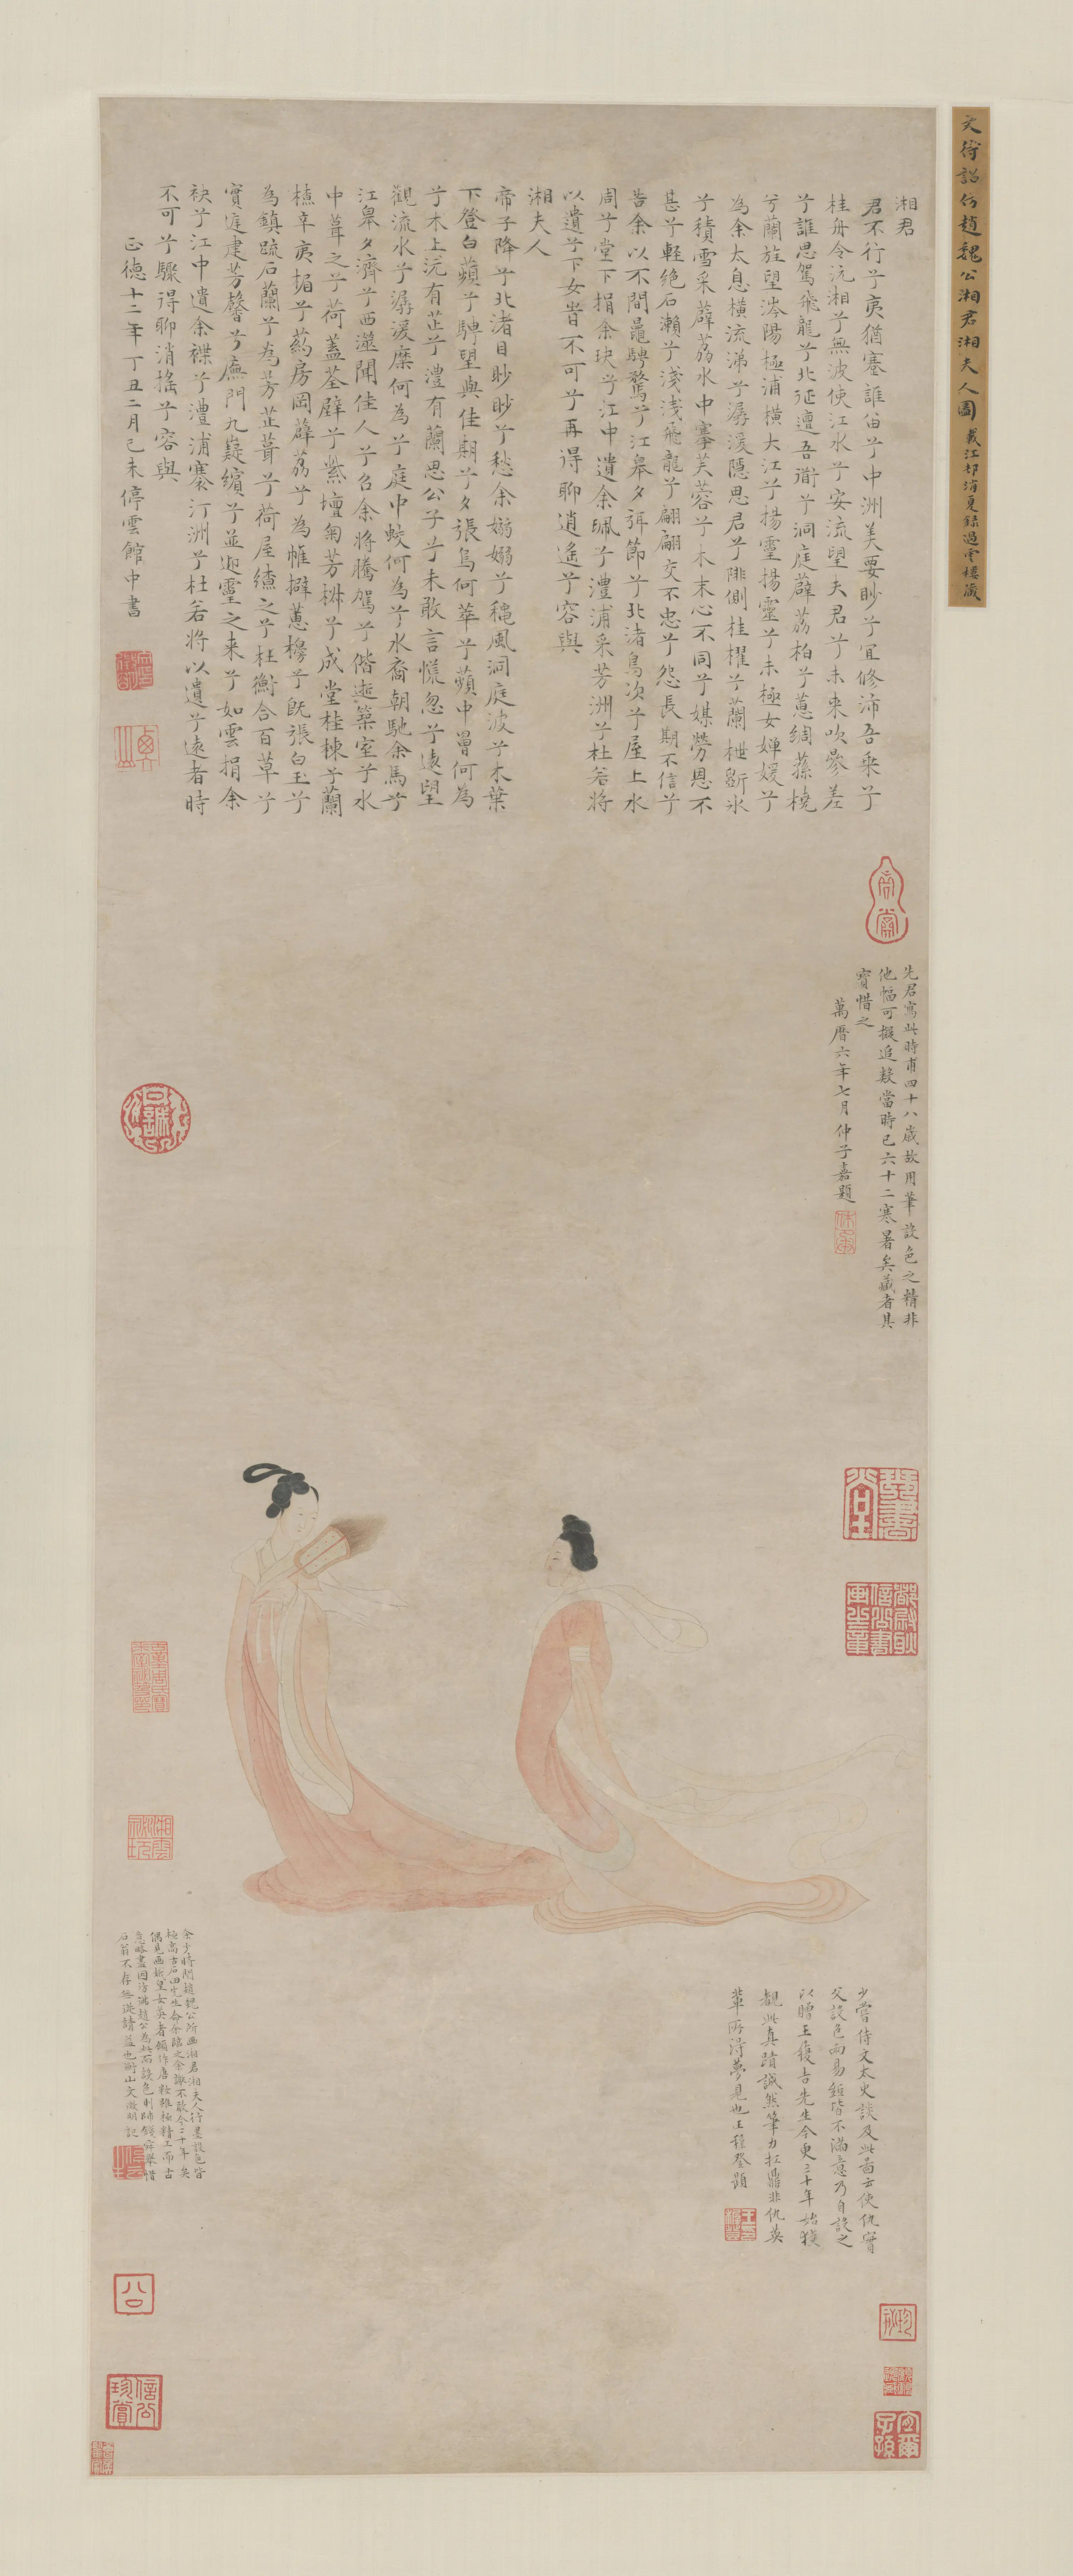 文待詔仿趙魏公湘君湘夫人圖 載江邨消夏錄過雲樓藏
湘君
君不行兮夷猶蹇誰留兮中洲美要眇兮宜修沛吾乘兮
桂舟令沅湘兮無波使江水兮安流望夫君兮未來吹參差
兮誰思駕飛龍兮北征邅吾道兮洞庭薜荔柏兮蕙綢蓀橈
兮蘭旌望涔陽極浦橫大江兮揚靈揚靈兮未極女嬋媛兮
為余太息橫流涕兮潺湲隱思君兮陫側桂櫂兮蘭枻斲冰
兮積雪采薜荔水中搴芙蓉兮木末心不同兮媒勞恩不
甚兮輕絕石瀨兮淺淺飛龍兮翩翩交不忠兮怨長期不信兮
告余以不閒鼂騁騖兮江皋夕弭節兮北渚鳥次兮屋上水
周兮堂下捐余玦兮江中遺余珮兮澧浦采芳洲兮杜若將
以遺兮下女旹不可兮再得聊逍遙兮容與
湘夫人
帝子降兮北渚目眇眇兮愁余嫋嫋兮穐風洞庭波兮木葉
下登白蘋兮騁望與佳期兮夕張鳥何萃兮蘋中罾何為
兮木上沅有芷兮澧有蘭思公子兮未敢言慌忽兮遠望
觀流水兮潺湲麋何為兮庭中蛟何為兮水裔朝馳余馬兮
江皋夕濟兮西澨聞佳人兮召余將騰駕兮偕逝築室兮水
中葺之兮荷蓋荃壁兮紫壇匊芳椒兮成堂桂棟兮蘭
橑辛夷楣兮葯房罔薜荔兮為帷擗蕙櫋兮既張白玉兮
為鎮疏石蘭兮為芳芷葺兮荷屋繚之兮杜衡合百草兮
實庭建芳馨兮廡門九嶷繽兮並迎靈之來兮如雲捐余
袂兮江中遺余褋兮澧浦搴汀洲兮杜若將以遺兮遠者時
不可兮驟得聊消搖兮容與
正德十二年丁丑二月己未停雲館中書
先君寫此時甫四十八歲故用筆設色之精非
他幅可擬追數當時已六十二寒暑矣藏者其
寶惜之
萬曆六年七月仲子嘉題
余少時閱趙魏公所畫湘君湘夫人行墨設色皆
極高古石田先生命余臨之余謝不敢今二十年矣
偶見畫娥皇女英者顧作唐妝雖極精工而古
意略盡因彷彿趙公為此而設色則師錢舜舉惜
石翁不存無從請益也衡山文徵明記
少嘗侍文太史談及此圖云使仇實
父設色兩易紙皆不滿意乃自設之
以贈王履吉先生今更三十年始獲
覩此真蹟誠然筆力扛鼎非仇英
輩所得夢見也王穉登題
信公
珍賞
宜爾
子孫